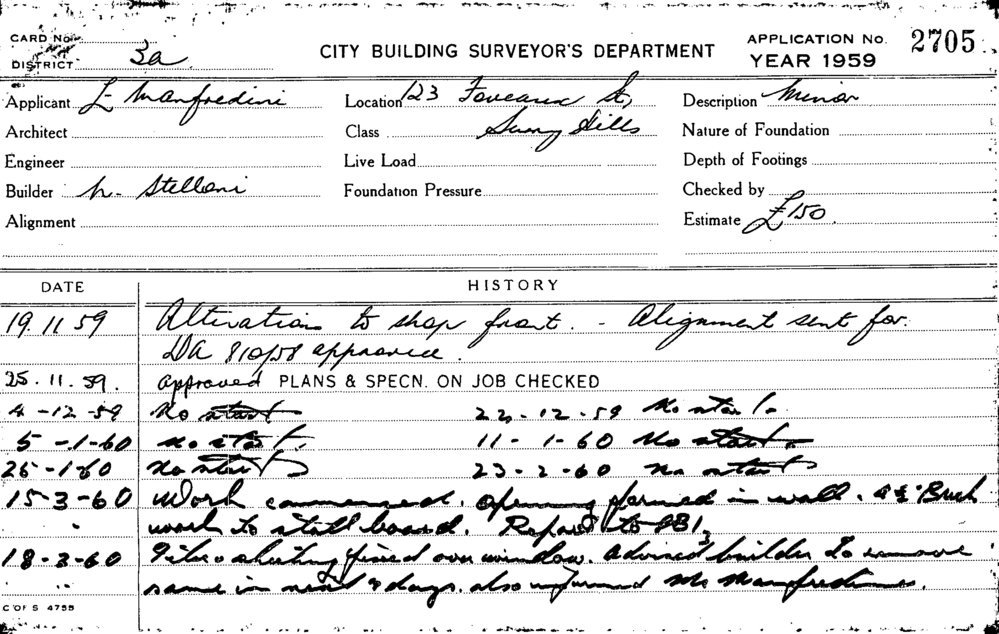 CARD No.
DISTRICT 3a
CITY BUILDING SURVEYOR'S DEPARTMENT
APPLICATION No. 2705
YEAR 1959
Applicant L Manfredini
Location 123 Foveaux St,
Description Minor
Architect
Class Surry Hills
Nature of Foundation
Engineer
Live Load
Depth of Footings
Builder N. Stellani
Foundation Pressure
Checked by
Alignment
Estimate £150
DATE HISTORY
19.11.59 Alterations to shop front. - Alignment sent for.
DA 810/58 approved.
25.11.59. approved PLANS & SPECN. ON JOB CHECKED
4-12-59 No start 22-12-59 No start.
5-1-60 no start. 11-1-60 No start.
25-1-60 no start 23-2-60 no start
15-3-60 Work commenced. opening formed in wall. Brick
work to stall board. Report to
18-3-60 Fibro sheeting fixed over window. advised builder to remove
same in next days. also informed Mr Manfredini.
C OF S 4755